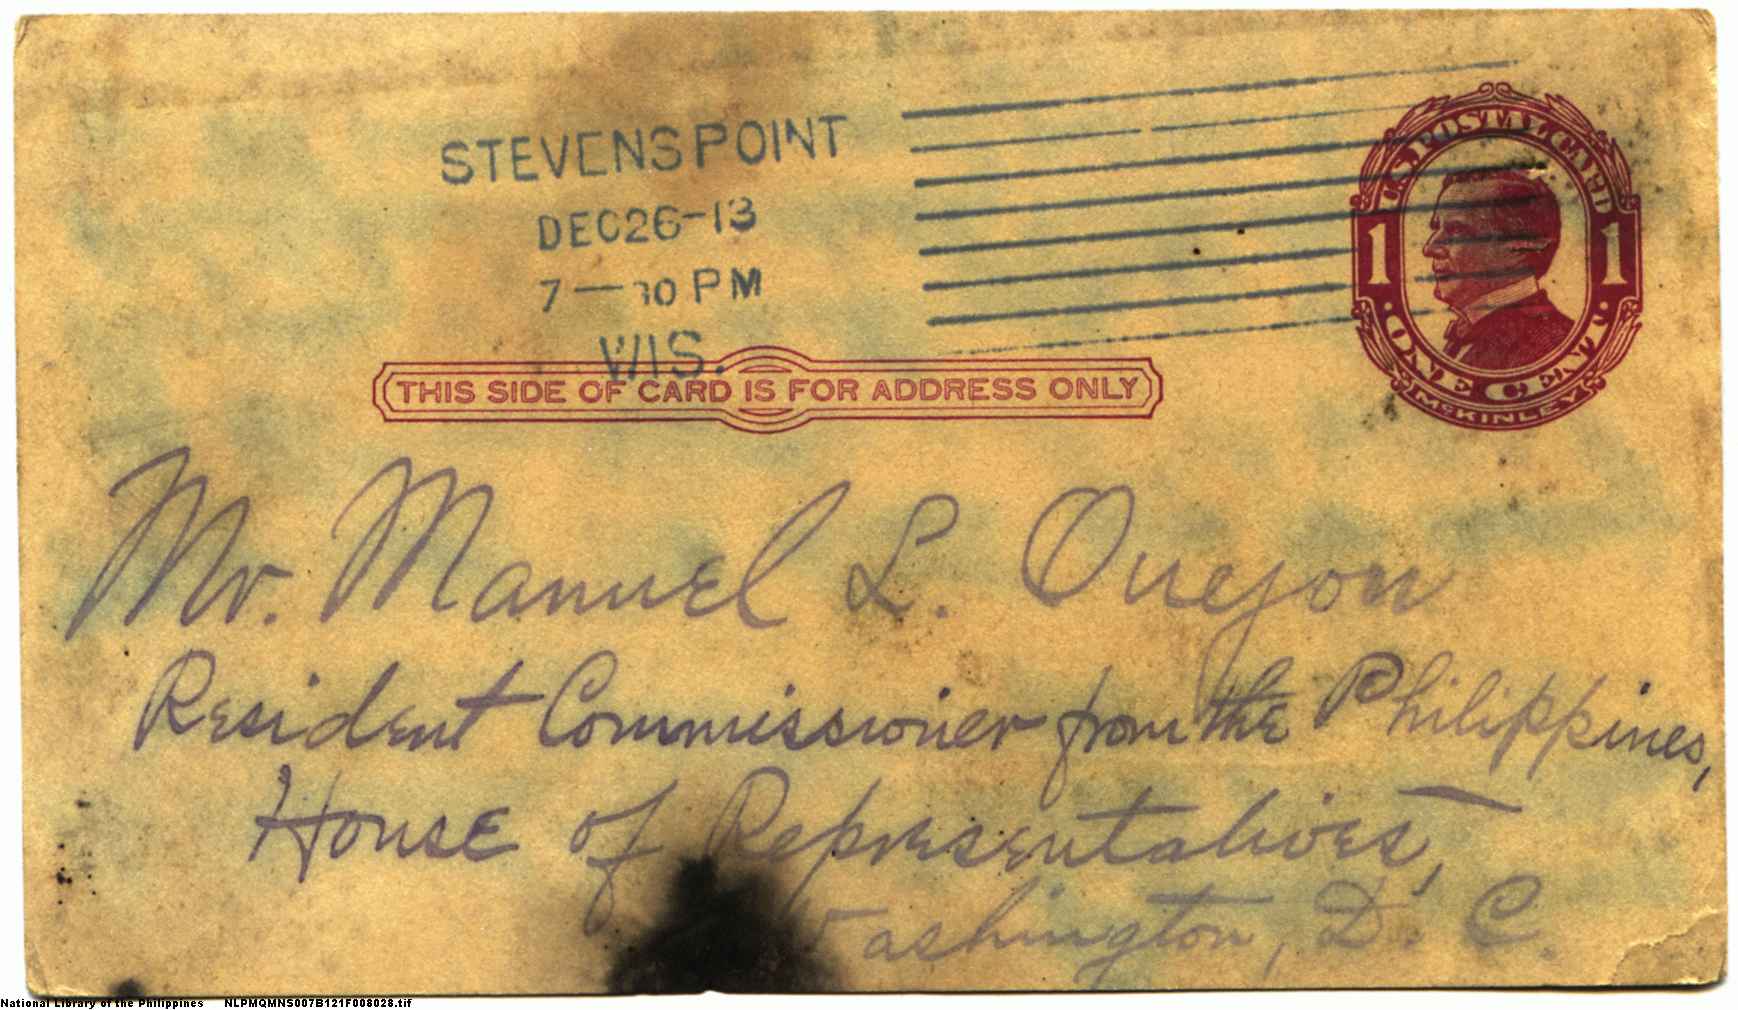 STEVENS POINT
DEC 26-13
7—30 PM
WIS.
U.S. POSTAL CARD
1 1
ONE CENT
McKINLEY
THIS SIDE OF CARD IS FOR ADDRESS ONLY
Mr. Manuel L. Quezon
Resident Commissioner from the Philippines,
House of Representatives,
Washington, D. C.
National Library of the Philippines NLPMQMNS007B121F008028.tif